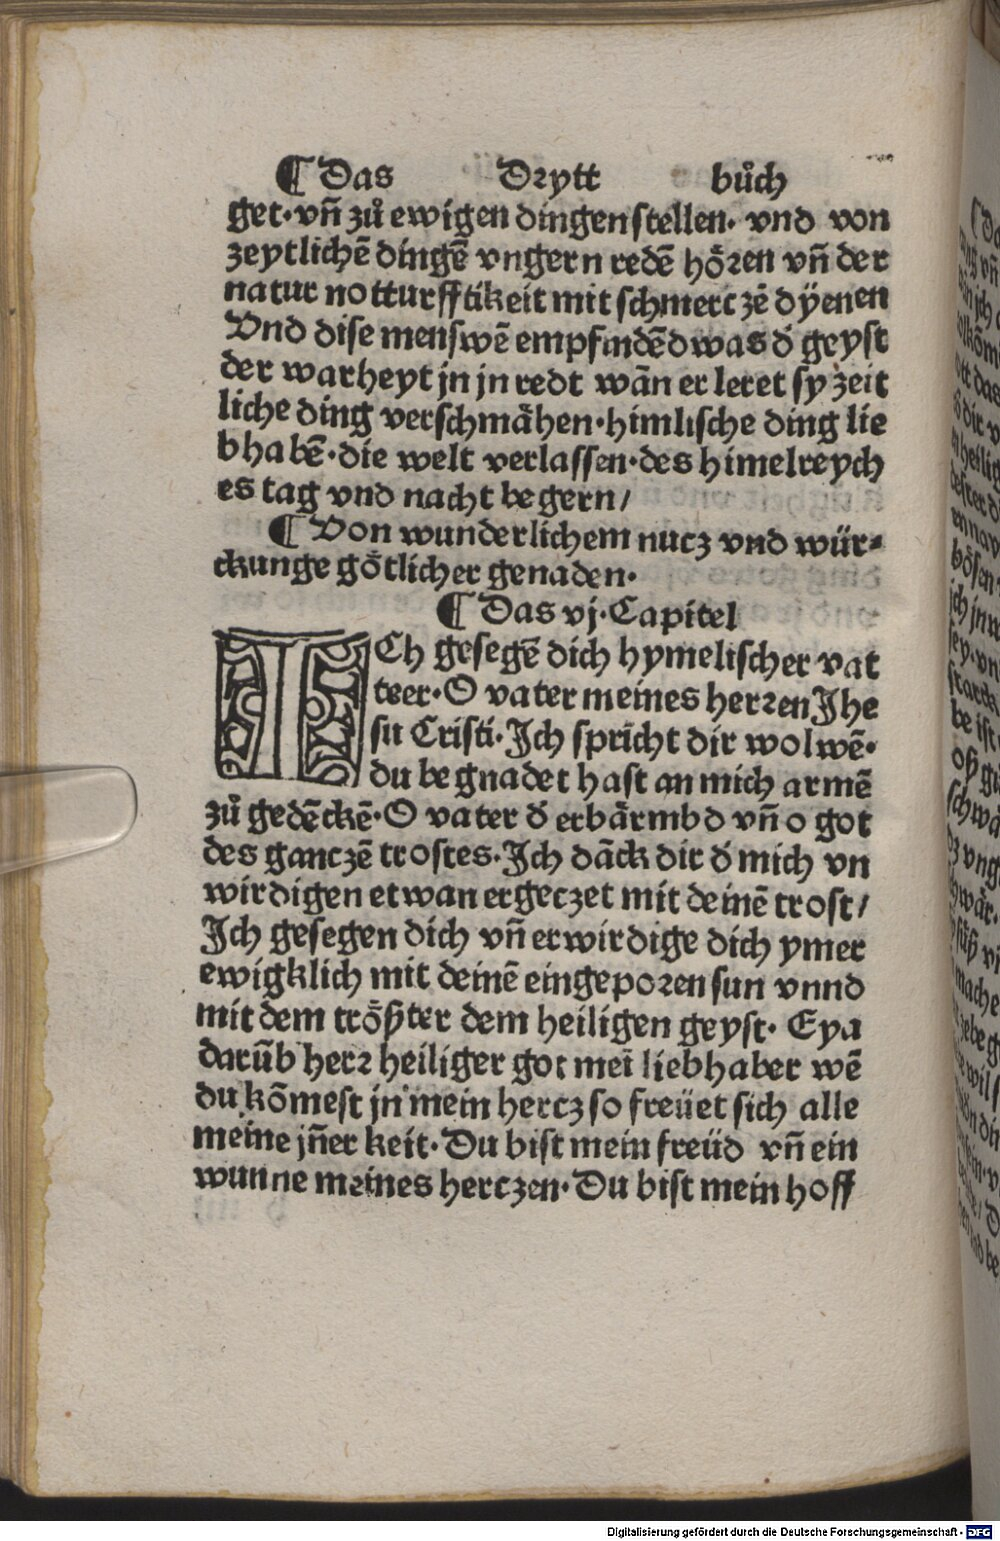 ¶ Das Drytt bůch
get·vñ zů ewigen dingen stellen· vnd von
zeytlichē dingē vngern redē hören vñ der
natur notturfftikeit mit schmerczē dÿenen
Vnd dise menswē empfindēd was d̕ geyst
der warheyt jn jn redt wān er leret sy zeit
liche ding verschmähen·himlische ding lie
bhabē·die welt verlassen·des himelreych
es tag vnd nacht begern/
¶ Von wunderlichem nucz vnd wür⸗
ckunge götlicher genaden·
¶ Das vj·Capitel
ICh gesegē dich hymelischer vat
teer·O vater meines herꝛen Jhe
su Cristi·Jch spricht dir wol wē·
du begnadet hast an mich armē
zů gedēckē·O vater d̕ erbärmbd vñ o got
des ganczē trostes·Jch dāck dir d̕ mich vn
wirdigen etwan ergeczet mit deinē trost/
Jch gesegen dich vñ erwirdige dich ymer
ewigklich mit deinē eingeporen sun vnnd
mit dem tröster dem heiligen geyst· Eya
darūb herꝛ heiliger got mei̅ liebhaber wē
du kōmest jn mein hercz so freüet sich alle
meine jñer keit·Du bist mein freüd vñ ein
wunne meines herczen·Du bist mein hoff
Digitalisierung gefördert durch die Deutsche Forschungsgemeinschaft - DFG